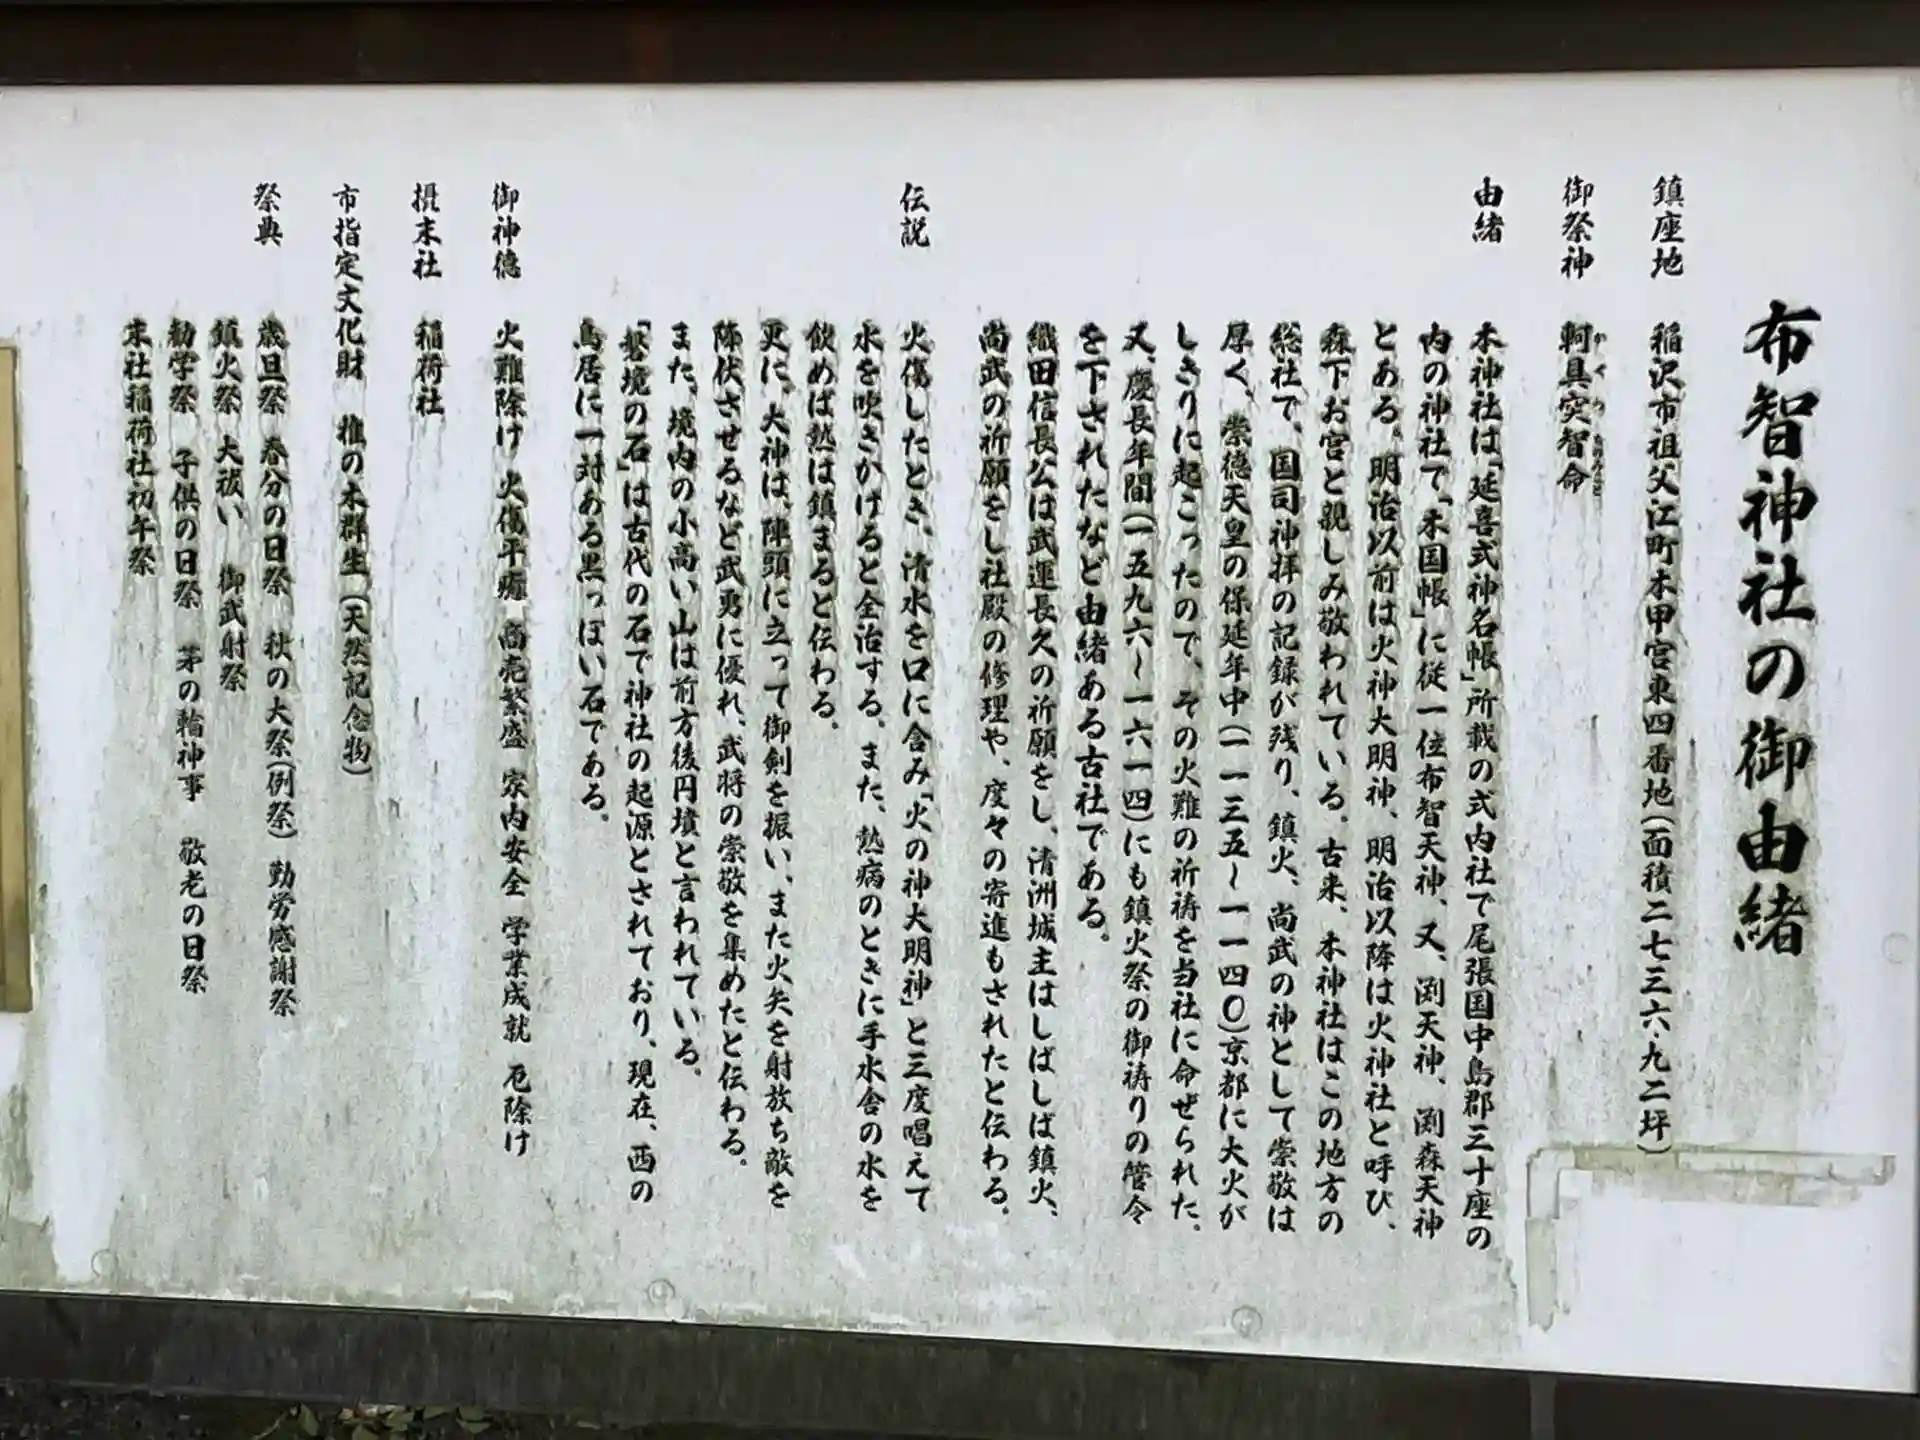 布智神社の御由緒
鎮座地 稲沢市祖父江町本甲宮東四番地(面積二七三六・九二坪)
御祭神 軻具突智命
由緒 本神社は「延喜式神名帳」所載の式内社で尾張国中島郡三十座の
内の神社で、「本国帳」に従一位布智天神、又、渕天神、渕森天神
とある。明治以前は火神大明神、明治以降は火神社と呼び、
森下お宮と親しみ敬われている。古来、本神社はこの地方の
総社で、国司神拝の記録が残り、鎮火、尚武の神として崇敬は
厚く、崇徳天皇の保延年中(一一三五~一一四〇)京都に大火が
しきりに起こったので、その火難の祈祷を当社に命ぜられた。
又、慶長年間(一五九六~一六一四)にも鎮火祭の御祷りの管令
を下されたなど由緒ある古社である。
織田信長公は武運長久の祈願をし、清洲城主はしばしば鎮火、
尚武の祈願をし社殿の修理や、度々の寄進もされたと伝わる。
伝説 火傷したとき、清水を口に含み「火の神大明神」と三度唱えて
水を吹きかけると全治する。また、熱病のときに手水舎の水を
飲めば熱は鎮まると伝わる。
更に、大神は、陣頭に立って御剣を振い、また火矢を射放ち敵を
降伏させるなど武勇に優れ、武将の崇敬を集めたと伝わる。
また、境内の小高い山は前方後円墳と言われている。
「磐境の石」は古代の石で神社の起源とされており、現在、西の
鳥居に一対ある黒っぽい石である。
御神徳 火難除け 火傷平癒 商売繁盛 家内安全 学業成就 厄除け
摂末社 稲荷社
市指定文化財 椎の木群生(天然記念物)
祭典 歳旦祭 春分の日祭 秋の大祭(例祭) 勤労感謝祭
鎮火祭 大祓い 御武射祭
勧学祭 子供の日祭 茅の輪神事 敬老の日祭
末社稲荷社初午祭